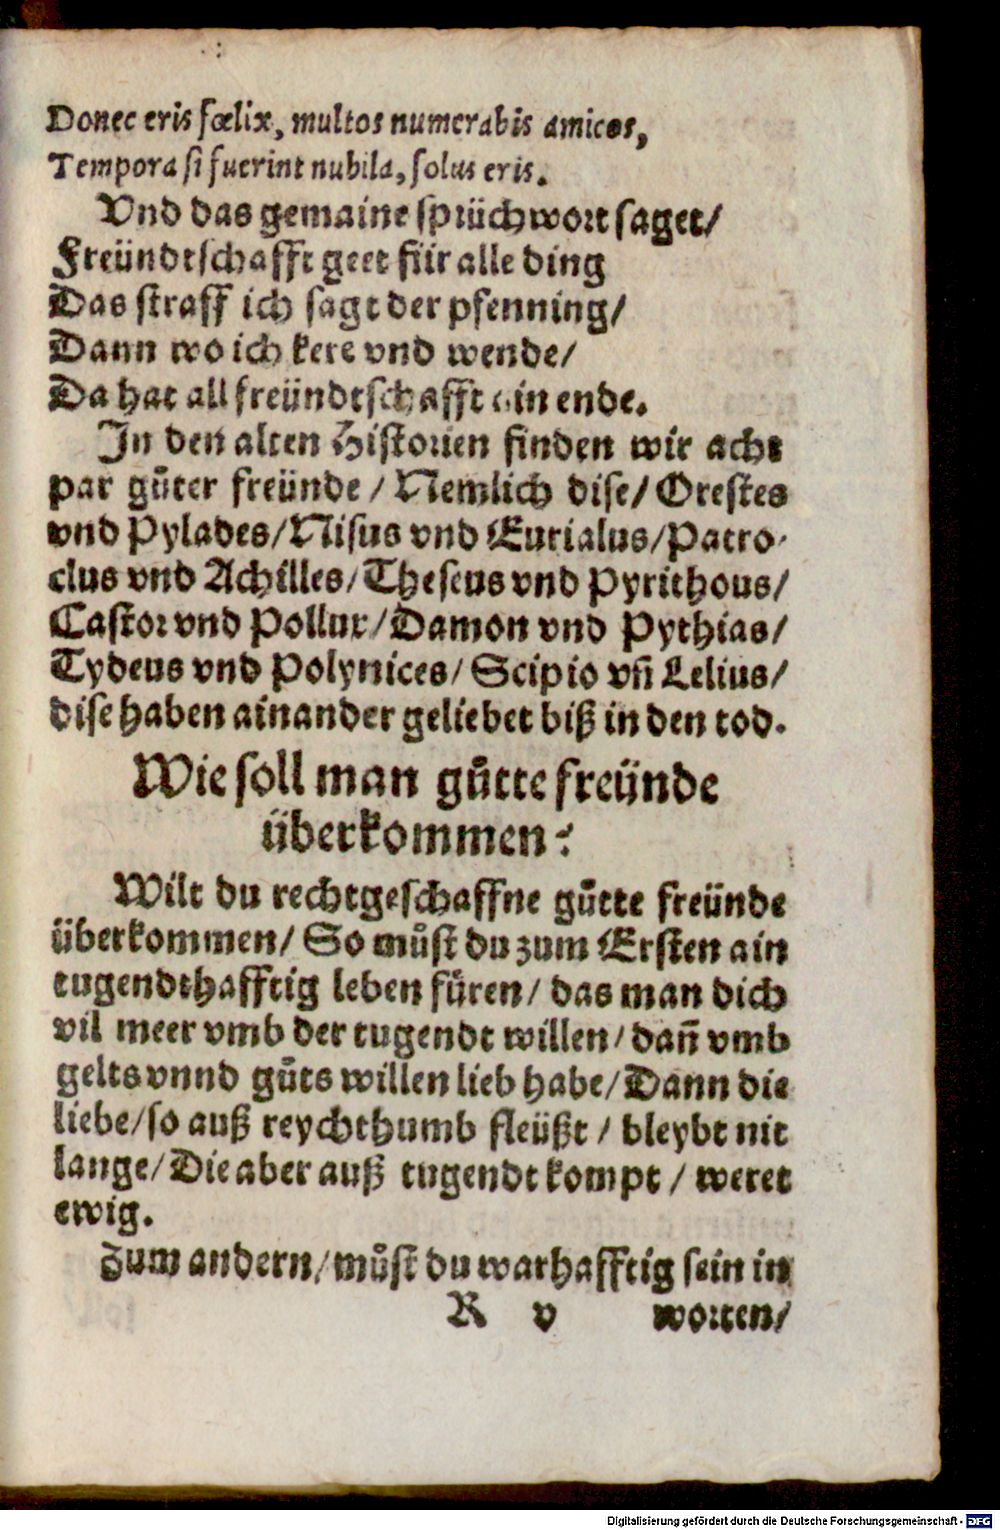 Donec eris fœlix, multos numerabis amicos,
Tempora si fuerint nubila, solus eris.
Vnd das gemaine sprüchwort saget/
Freündtschafft geet für alle ding
Das straff ich sagt der pfenning/
Dann wo ich kere vnd wende/
Da hat all freündtschafft ain ende.
In den alten Historien finden wir acht
par gůter freünde / Nemlich dise/ Orestes
vnd Pylades/ Nisus vnd Eurialus/ Patro-
clus vnd Achilles/ Theseus vnd Pyrithous/
Castor vnd Pollux/ Damon vnd Pythias/
Tydeus vnd Polynices/ Scipio vñ Lelius/
dise haben ainander geliebet biß in den tod.
Wie soll man gůtte freünde
überkommen?
Wilt du rechtgeschaffne gůtte freünde
überkommen/ So můst du zum Ersten ain
tugendthafftig leben füren/ das man dich
vil meer vmb der tugendt willen/ dañ vmb
gelts vnnd gůts willen lieb habe/ Dann die
liebe/ so auß reychthumb fleüßt / bleybt nit
lange/ Die aber auß tugendt kompt / weret
ewig.
Zum andern/ můst du warhafftig sein in
R v worten/
Digitalisierung gefördert durch die Deutsche Forschungsgemeinschaft - DFG